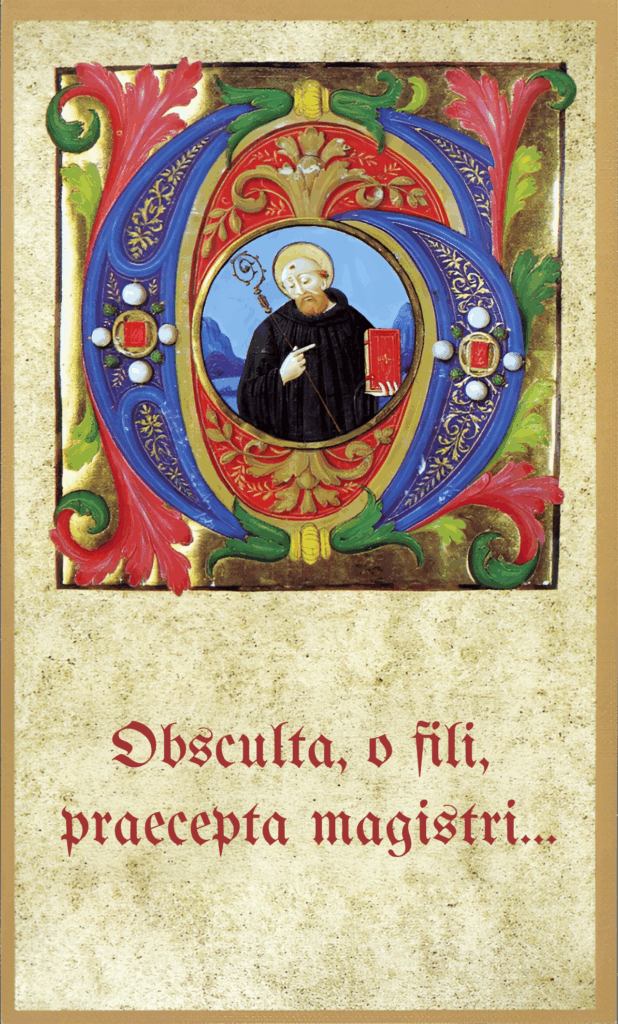 Obsculta, o fili,
praecepta magistri...